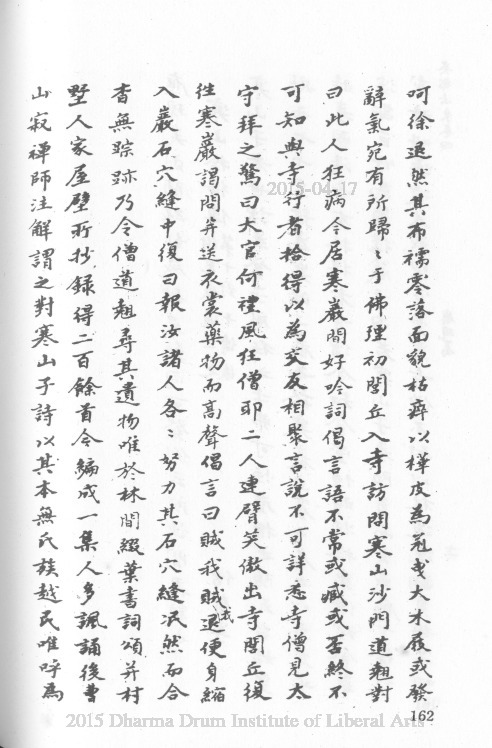 呵徐退然其布襦零落面貌枯瘁以樺皮為冠曳大木屐或發
辭氣宛有所歸〻于佛理初閭丘入寺訪問寒山沙門道翹對
曰此人狂病今居寒巖間好吟詞偈言語不常或臧或否終不
可知與寺行者拾得以為交友相聚言說不可詳悉寺僧見太
守拜之驚曰大官何禮風狂僧耶二人連臂笑傲出寺閭丘復
往寒巖謁問并送衣裳藥物而高聲倡言曰賊我賊退便身縮
入巖石穴縫中復曰報汝諸人各〻努力其石穴縫泯然而合
杳無踪跡乃令僧道翹尋其遺物唯於林間綴葉書詞頌并村
墅人家屋壁所抄錄得二百餘首今編成一集人多諷誦後曹
山寂禪師注解謂之對寒山子詩以其本無氏族越民唯呼為
2015-04-17
2015 Dharma Drum Institute of Liberal Arts
162